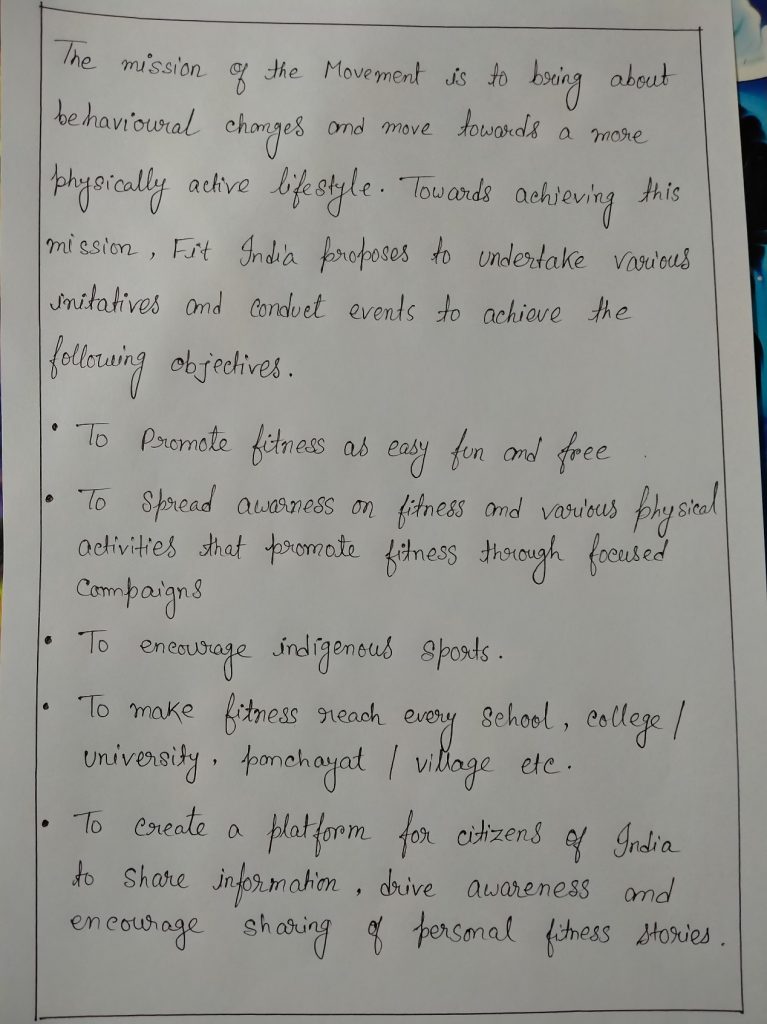 The mission of the Movement is to bring about
behavioural changes and move towards a more
physically active lifestyle. Towards achieving this
mission, Fit India proposes to undertake various
initatives and conduct events to achieve the
following objectives.
• To Promote fitness as easy fun and free
• To Spread awarness on fitness and various physical
activities that promote fitness through focused
Campaigns
• To encourage indigenous sports.
• To make fitness reach every School, college /
university, panchayat / village etc.
• To create a platform for citizens of India
to share information, drive awareness and
encourage sharing of personal fitness stories.